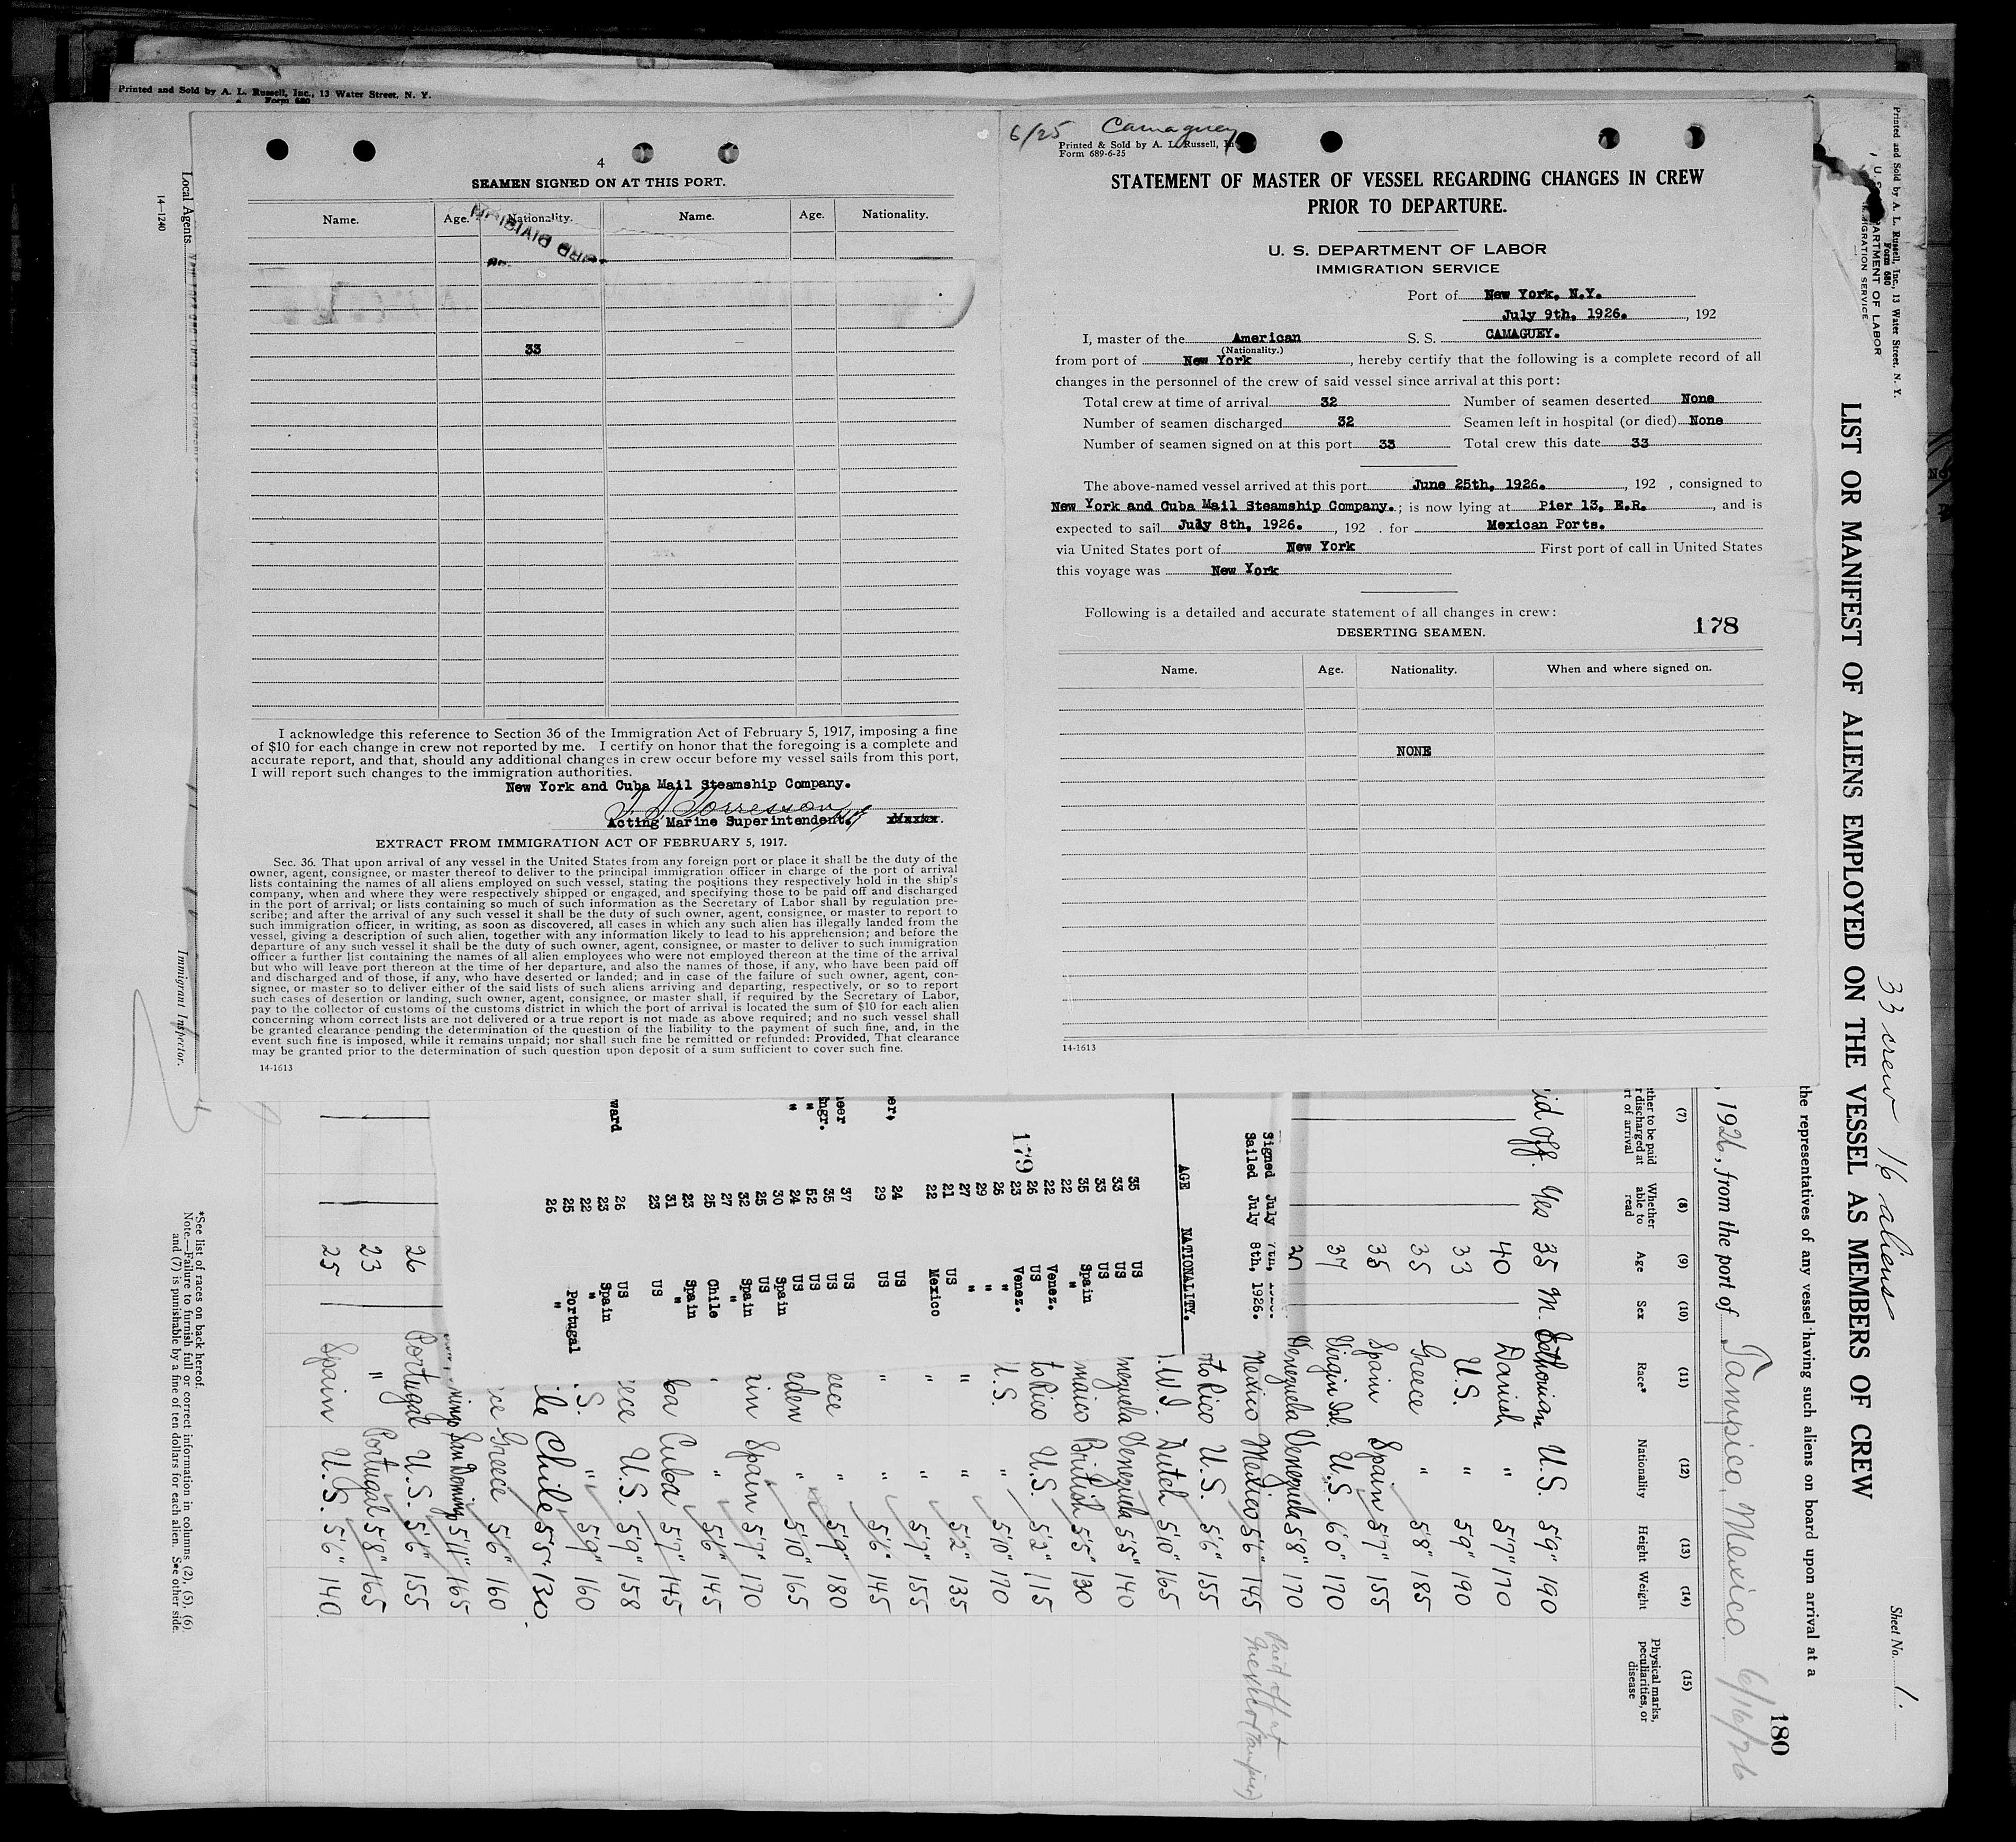 Printed and Sold by A. L. Russell, Inc., 13 Water Street, N. Y.
Form 680
4
SEAMEN SIGNED ON AT THIS PORT.
Name. Age. Nationality. Name. Age. Nationality.
33
I acknowledge this reference to Section 36 of the Immigration Act of February 5, 1917, imposing a fine
of $10 for each change in crew not reported by me. I certify on honor that the foregoing is a complete and
accurate report, and that, should any additional changes in crew occur before my vessel sails from this port,
I will report such changes to the immigration authorities.
New York and Cuba Mail Steamship Company.
Acting Marine Superintendent.
EXTRACT FROM IMMIGRATION ACT OF FEBRUARY 5, 1917.
Sec. 36. That upon arrival of any vessel in the United States from any foreign port or place it shall be the duty of the
owner, agent, consignee, or master thereof to deliver to the principal immigration officer in charge of the port of arrival
lists containing the names of all aliens employed on such vessel, stating the positions they respectively hold in the ship's
company, when and where they were respectively shipped or engaged, and specifying those to be paid off and discharged
in the port of arrival; or lists containing so much of such information as the Secretary of Labor shall by regulation pre-
scribe; and after the arrival of any such vessel it shall be the duty of such owner, agent, consignee, or master to report to
such immigration officer, in writing, as soon as discovered, all cases in which any such alien has illegally landed from the
vessel, giving a description of such alien, together with any information likely to lead to his apprehension; and before the
departure of any such vessel it shall be the duty of such owner, agent, consignee, or master to deliver to such immigration
officer a further list containing the names of all alien employees who were not employed thereon at the time of the arrival
but who will leave port thereon at the time of her departure, and also the names of those, if any, who have been paid off
and discharged and of those, if any, who have deserted or landed; and in case of the failure of such owner, agent, con-
signee, or master so to deliver either of the said lists of such aliens arriving and departing, respectively, or so to report
such cases of desertion or landing, such owner, agent, consignee, or master shall, if required by the Secretary of Labor,
pay to the collector of customs of the customs district in which the port of arrival is located the sum of $10 for each alien
concerning whom correct lists are not delivered or a true report is not made as above required; and no such vessel shall
be granted clearance pending the determination of the question of the liability to the payment of such fine, and, in the
event such fine is imposed, while it remains unpaid; nor shall such fine be remitted or refunded: Provided, That clearance
may be granted prior to the determination of such question upon deposit of a sum sufficient to cover such fine.
14-1613
6/25 Camaguey
Printed & Sold by A. L. Russell, In
Form 689-6-25
STATEMENT OF MASTER OF VESSEL REGARDING CHANGES IN CREW
PRIOR TO DEPARTURE.
U. S. DEPARTMENT OF LABOR
IMMIGRATION SERVICE
Port of New York, N.Y.
July 9th, 1926. , 192
I, master of the American S. S. CAMAGUEY.
(Nationality.)
from port of New York , hereby certify that the following is a complete record of all
changes in the personnel of the crew of said vessel since arrival at this port:
Total crew at time of arrival 32 Number of seamen deserted None
Number of seamen discharged 32 Seamen left in hospital (or died) None
Number of seamen signed on at this port 33 Total crew this date 33
The above-named vessel arrived at this port June 25th, 1926. , 192 , consigned to
New York and Cuba Mail Steamship Company. ; is now lying at Pier 13, E.R. , and is
expected to sail July 8th, 1926. , 192 . for Mexican Ports.
via United States port of New York First port of call in United States
this voyage was New York
Following is a detailed and accurate statement of all changes in crew:
DESERTING SEAMEN.
178
Name. Age. Nationality. When and where signed on.
NONE
14-1613
Local Agents
14-1240
Immigrant Inspector.
Printed and Sold by A. L. Russell, Inc., 13 Water Street, N. Y.
Form 680
LIST OR MANIFEST OF ALIENS EMPLOYED ON THE VESSEL AS MEMBERS OF CREW
33 crew 16 aliens
Sheet No. 1
the representatives of any vessel having such aliens on board upon arrival at a
180
, 1926, from the port of Tampico, Mexico 6/16/26
(7) (8) Whether able to read (9) Age (10) Sex (11) Race* (12) Nationality (13) Height (14) Weight (15) Physical marks, peculiarities, or disease
id Off. Yes 35 M. U.S. 5'9" 190
40 Danish " 5'7" 170
33 U.S. " 5'9" 190
35 Greece " 5'8" 185
35 Spain Spain 5'7" 155
37 Virgin Isl. U.S. 6'0" 170
Venezuela Venezuela 5'8" 170
Mexico Mexico 5'6" 145
to Rico U.S. 5'6" 155
W.I. Dutch 5'10" 165
nezuela Venezuela 5'5" 140
maica British 5'5" 130
to Rico U.S. 5'2" 115
U.S. " 5'10" 170
" " 5'2" 135
" " 5'7" 155
" " 5'6" 145
eece " 5'9" 180
eden " 5'10" 165
in Spain 5'7" 170
" " 5'6" 145
ba Cuba 5'7" 145
eece U.S. 5'9" 158
S. " 5'9" 160
ile Chile 5'5" 130
ce Greece 5'6" 160
San Domingo 5'11" 165
26 Portugal U.S. 5'6" 155
23 " Portugal 5'8" 165
25 Spain U.S. 5'6" 140
Signed July 7th,
Sailed July 8th, 1926.
AGE NATIONALITY.
179
35 US
33 US
33 US
35 Spain
22 "
22 Venez.
26 US
23 Venez.
26 "
29 "
27 "
21 US
22 Mexico
24 US
29 US
37 US
35 US
52 US
24 US
30 Spain
25 US
32 "
27 Spain
25 Chile
23 "
31 Spain
23 US
26 US
23 Spain
22 "
25 Portugal
26 "
*See list of races on back hereof.
Note.—Failure to furnish full or correct information in columns (2), (5), (6)
and (7) is punishable by a fine of ten dollars for each alien. See other side.